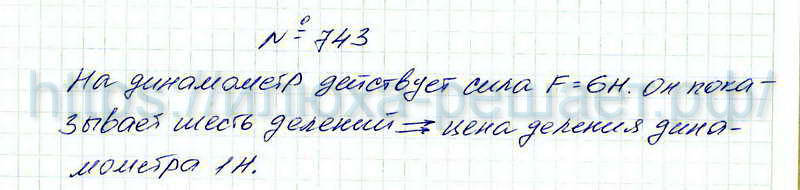 № 743
На динамометр действует сила F=6Н. Он пока-
зывает шесть делений ⇒ цена деления дина-
мометра 1Н.